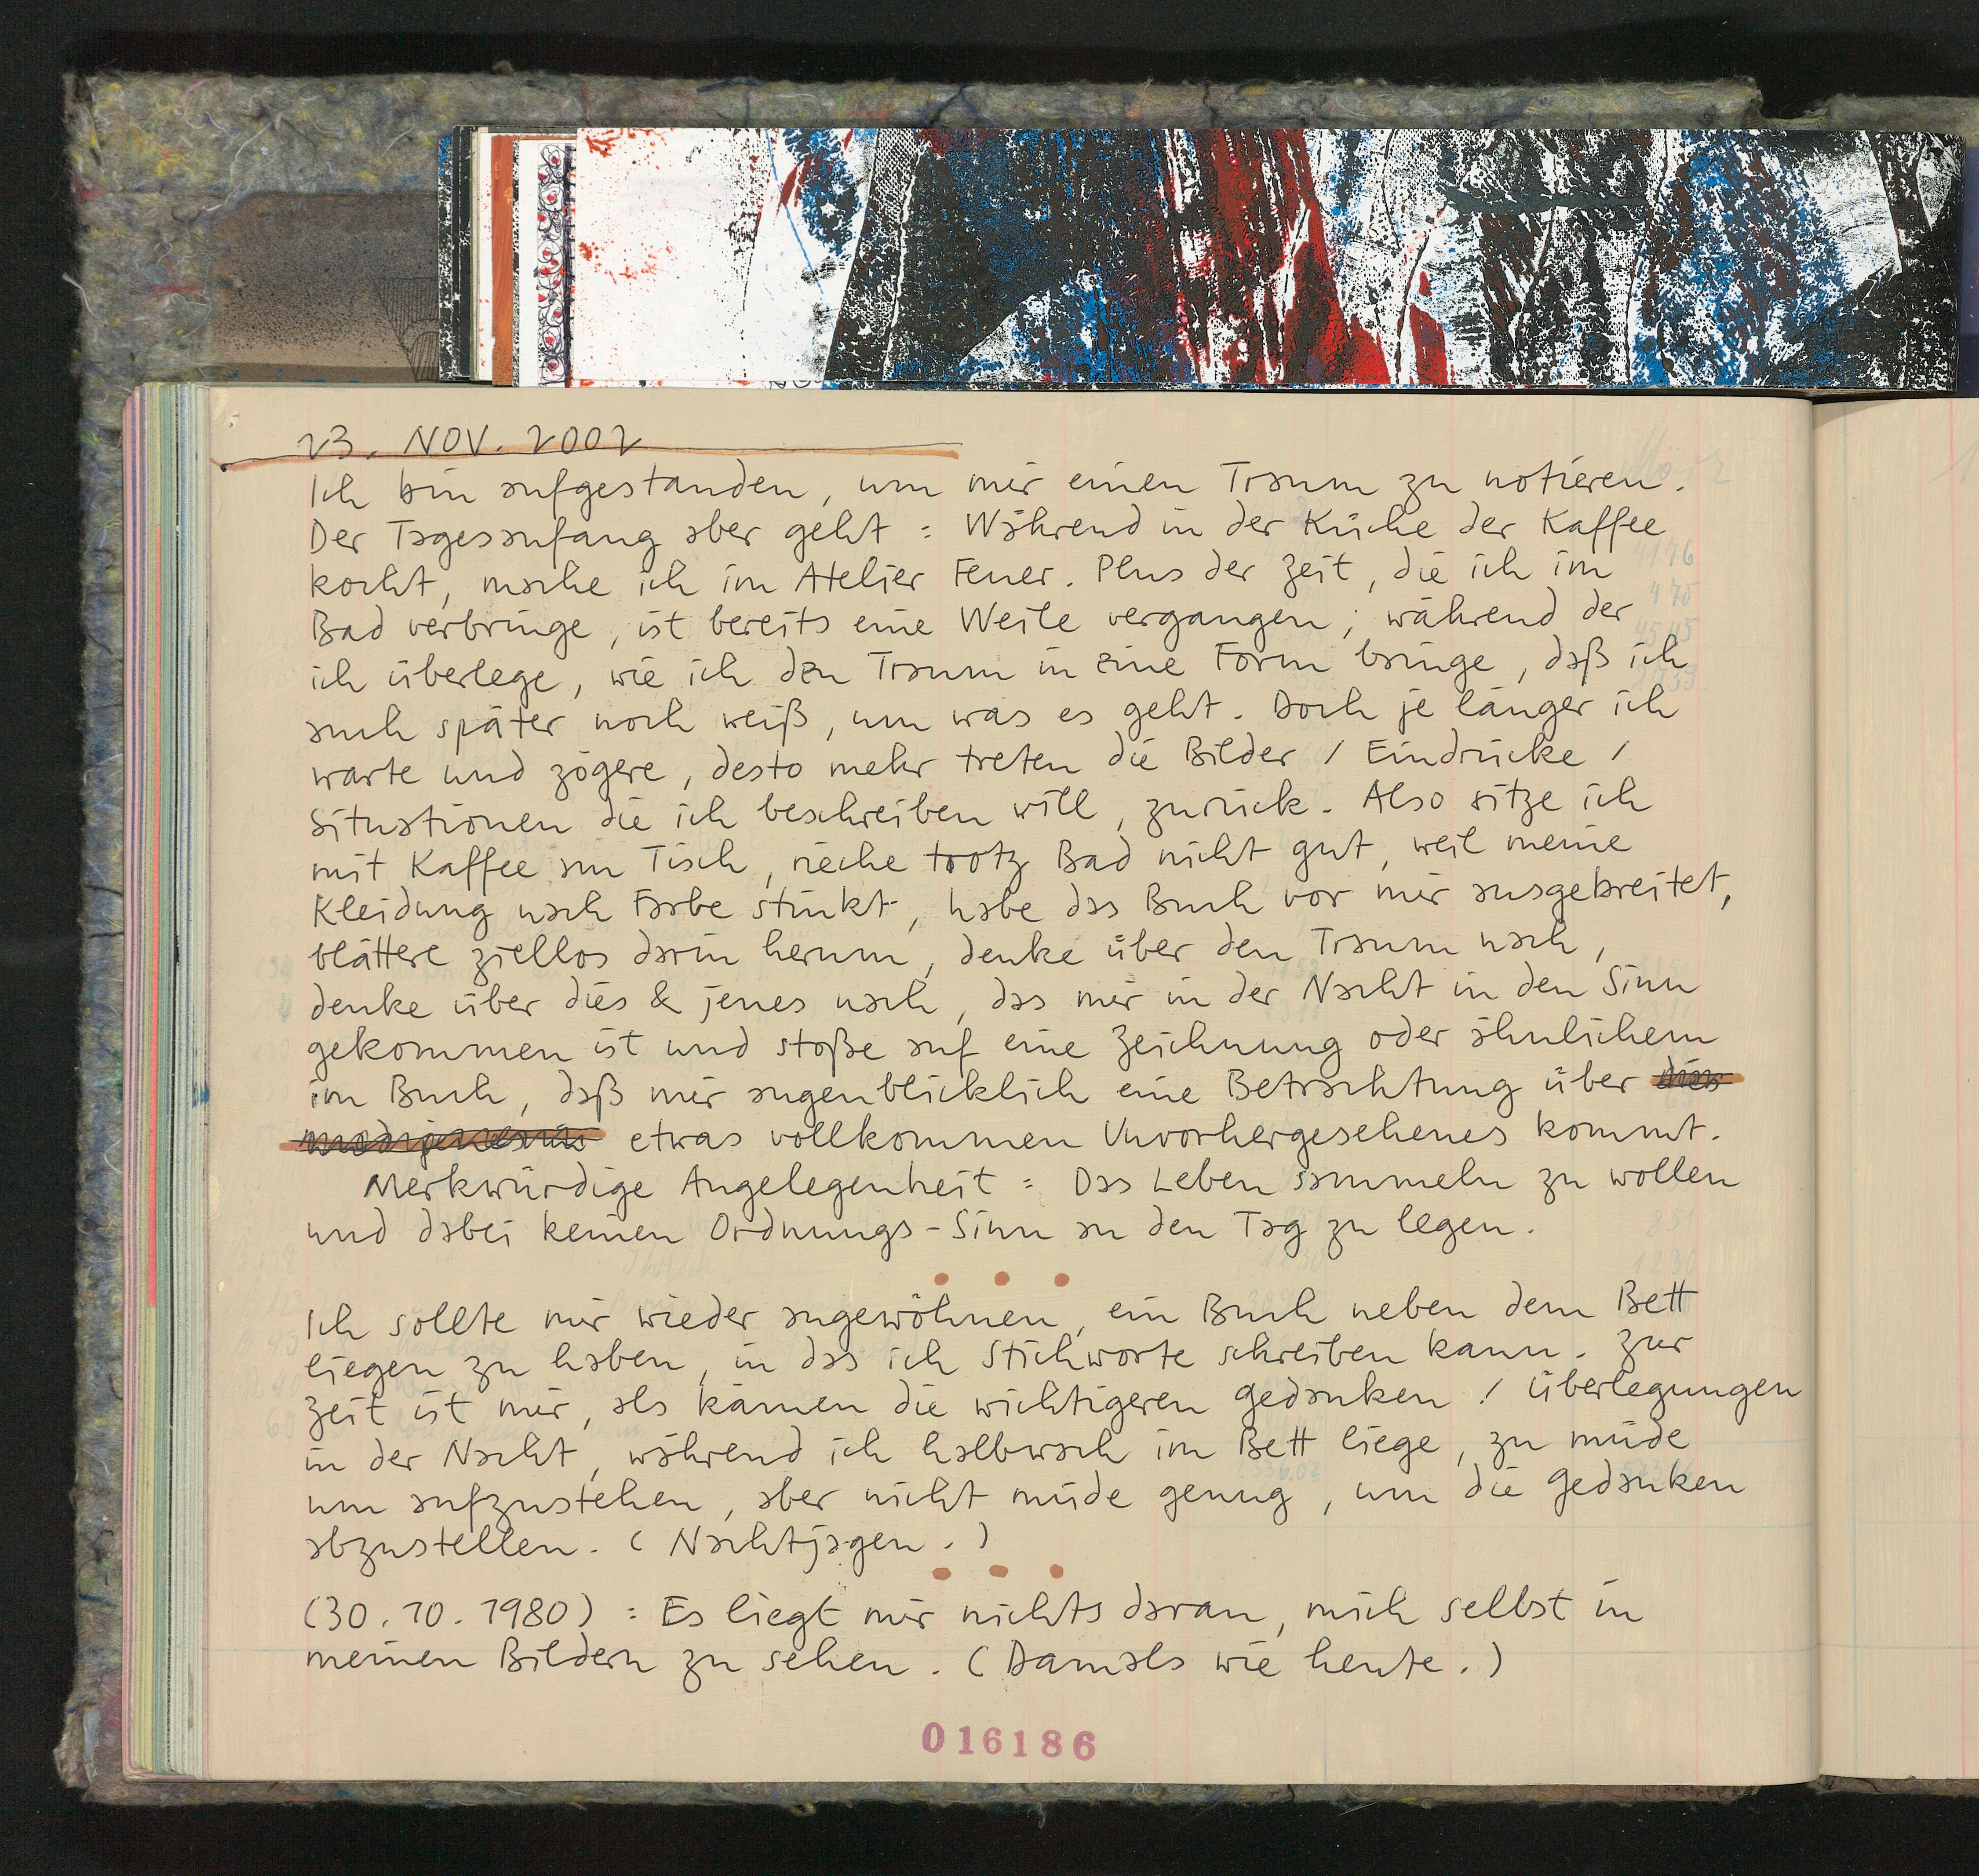 23. NOV. 2002
Ich bin aufgestanden, um mir einen Traum zu notieren.
Der Tagesanfang aber geht: Während in der Küche der Kaffee
kocht, mache ich im Atelier Feuer. Plus der Zeit, die ich im
Bad verbringe, ist bereits eine Weile vergangen; während der
ich überlege, wie ich den Traum in eine Form bringe, daß ich
auch später noch weiß, um was es geht. Doch je länger ich
warte und zögere, desto mehr treten die Bilder / Eindrücke /
Situationen die ich beschreiben will, zurück. Also sitze ich
mit Kaffee am Tisch, rieche trotz Bad nicht gut, weil meine
Kleidung nach Farbe stinkt, habe das Buch vor mir ausgebreitet,
blättere ziellos darin herum, denke über den Traum nach,
denke über dies & jenes nach, das mir in der Nacht in den Sinn
gekommen ist und stoße auf eine Zeichnung oder ähnlichem
im Buch, daß mir augenblicklich eine Betrachtung über dies
etwas vollkommen Unvorhergesehenes kommt.
Merkwürdige Angelegenheit: Das Leben sammeln zu wollen
und dabei keinen Ordnungs-Sinn an den Tag zu legen.
Ich sollte mir wieder angewöhnen, ein Buch neben dem Bett
liegen zu haben, in das ich Stichworte schreiben kann. Zur
Zeit ist mir, als kämen die wichtigeren Gedanken / Überlegungen
in der Nacht, während ich halbwach im Bett liege, zu müde
um aufzustehen, aber nicht müde genug, um die Gedanken
abzustellen. (Nachtjagen.)
(30.10.1980): Es liegt mir nichts daran, mich selbst in
meinen Bildern zu sehen. (Damals wie heute.)
016186